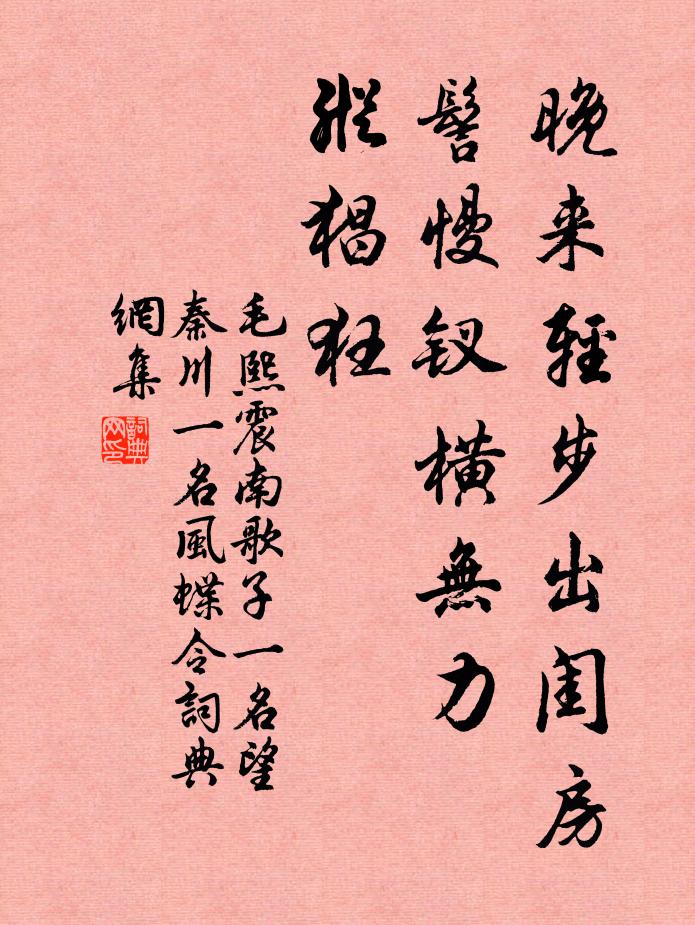 晚来輕步出闺房
髻慢钗横無力
縱猖狂
毛熙震南歌子一名望
秦川一名風蝶令詞典
網集
詞典
网印